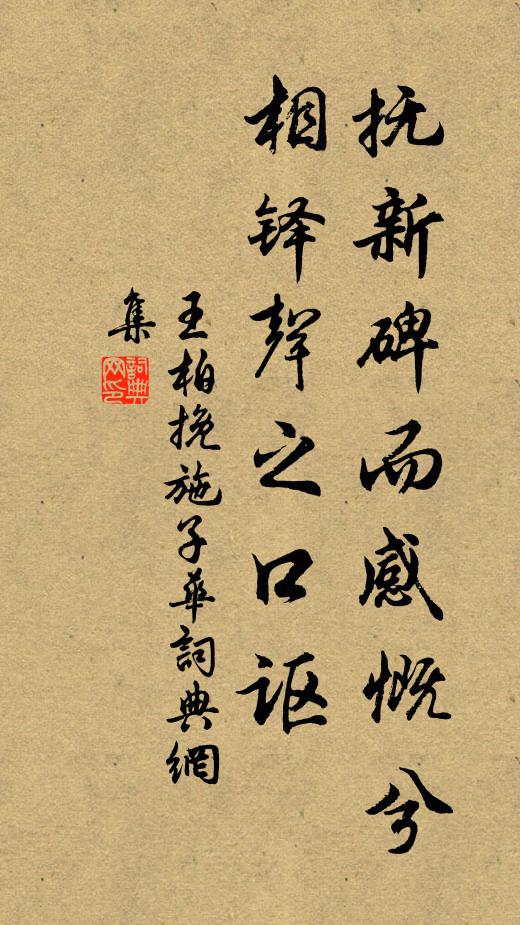 抚新碑而感慨兮
相铎聲之口讴
王柏挽施子華詞典網
集
詞典
网印